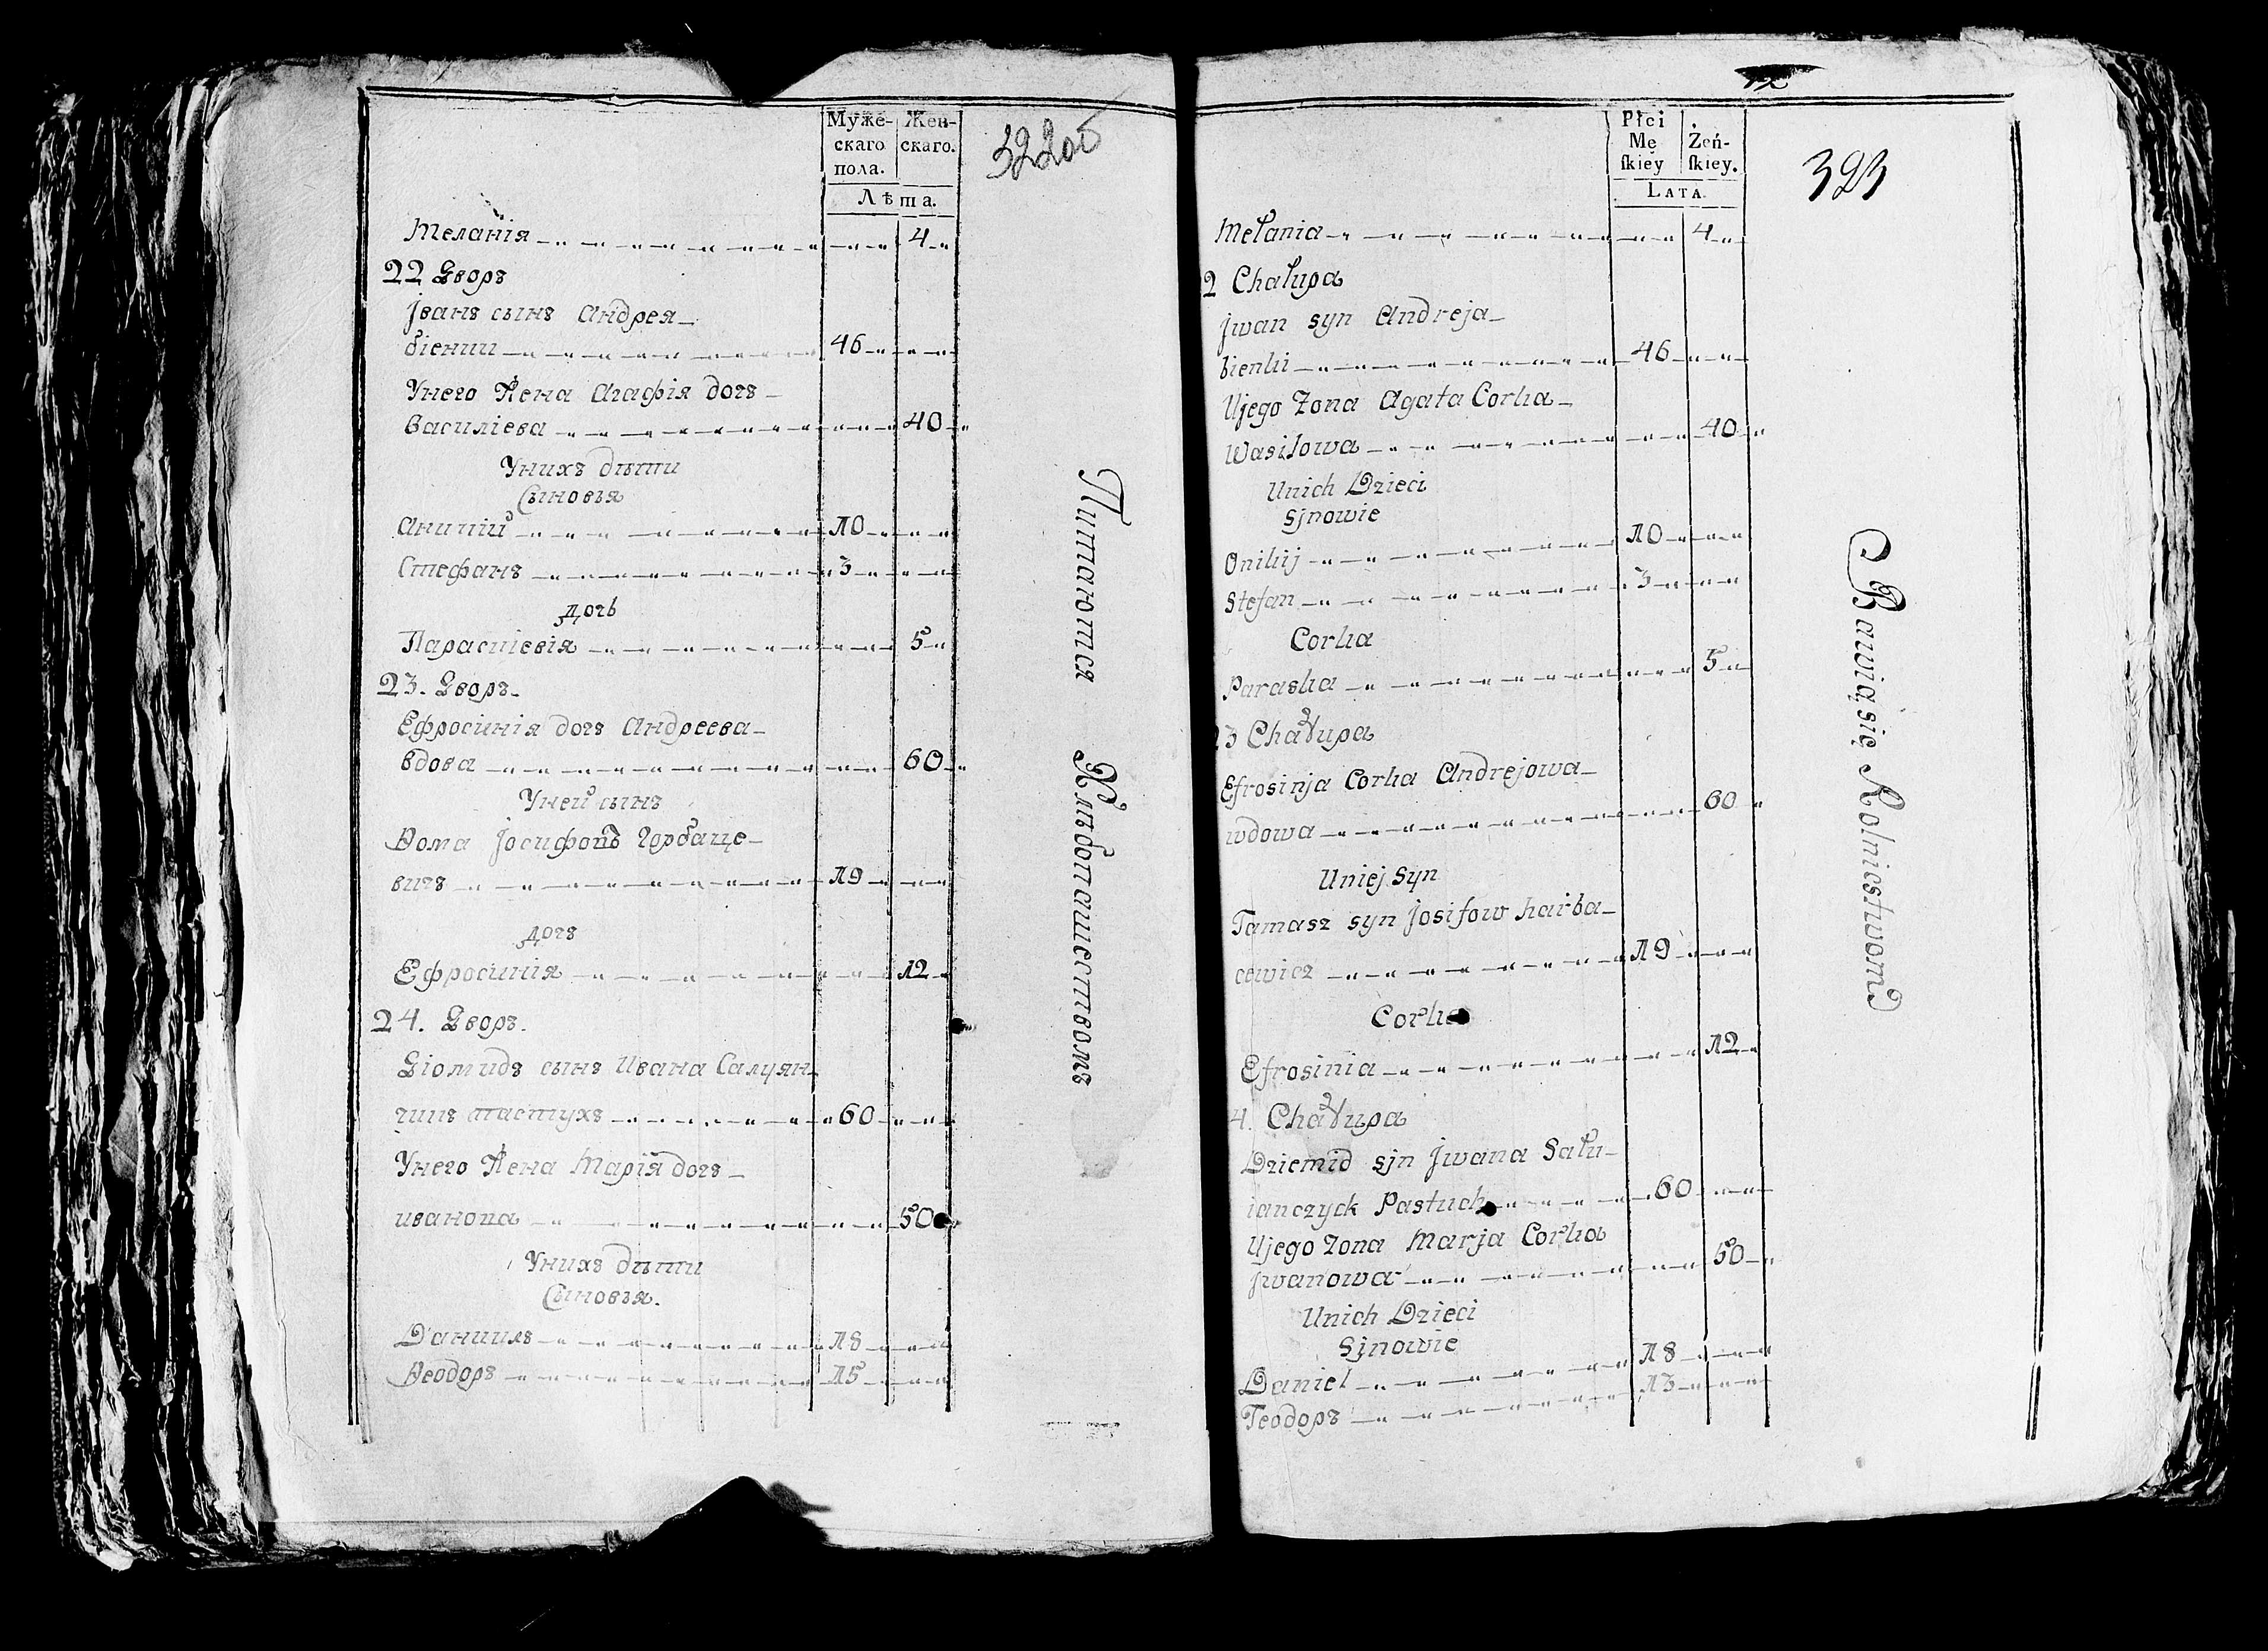 Муже- Жен-
скаго скаго.
пола.
Лѣта.
322об
Меланія 4
22 Дворъ
Јванъ сынъ Андрея
біенки 46
Унего Жена Агафія дочь
Василіева 40
Унихъ дѣти
Сыновья
Аникій 10
Стефанъ 3
Дочь
Параскіевія 5
23. Дворъ
Ефросинія дочь Андреева
вдова 60
Уней сынъ
Ѳома Јосифовъ Горбаце-
вичъ 19
Дочь
Ефросинія 12
24. Дворъ.
Діомидъ сынъ Ивана Салуян-
чикъ пастухъ 60
Унего Жена Марія дочь
иванова 50
Унихъ дѣти
Сыновья.
Даниилъ 18
Ѳеодоръ 15
Питаются Хлѣбопашествомъ
12
Płci Żeń-
Mę skiey.
skiey
LATA
323
Mełania 4
2 Chałupa
Jwan syn Andreja
bienki 46
Ujego Zona Agata Corka
Wasilowa 40
Unich Dzieci
Sjnowie
Onikij 10
Stefan 3
Corka
Paraska 5
23 Chałupa
Efrosinja Corka Andrejowa
wdowa 60
Uniej Syn
Tamasz syn Josifow harba-
cewicz 19
Corka
Efrosinia 12
4. Chałupa
Dziemid sjn Jwana Sału-
ianczyck Pastuch 60
Ujego Zona Marja Corka
Jwanowa 50
Unich Dzieci
Sjnowie
Daniel 18
Теодоръ 13
Bawią się Rolnicstwom